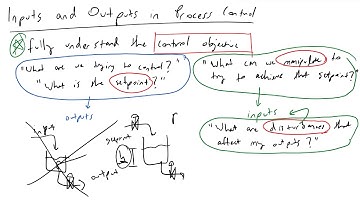 Inputs and Outputs in Process Control
fully understand the control objective
"What are we trying to control?"
"What is the setpoint?"
outputs
"What can we manipulate to
try to achieve that setpoint?"
inputs
"What are disturbances that
affect my outputs?"
input
output
setpoint
h